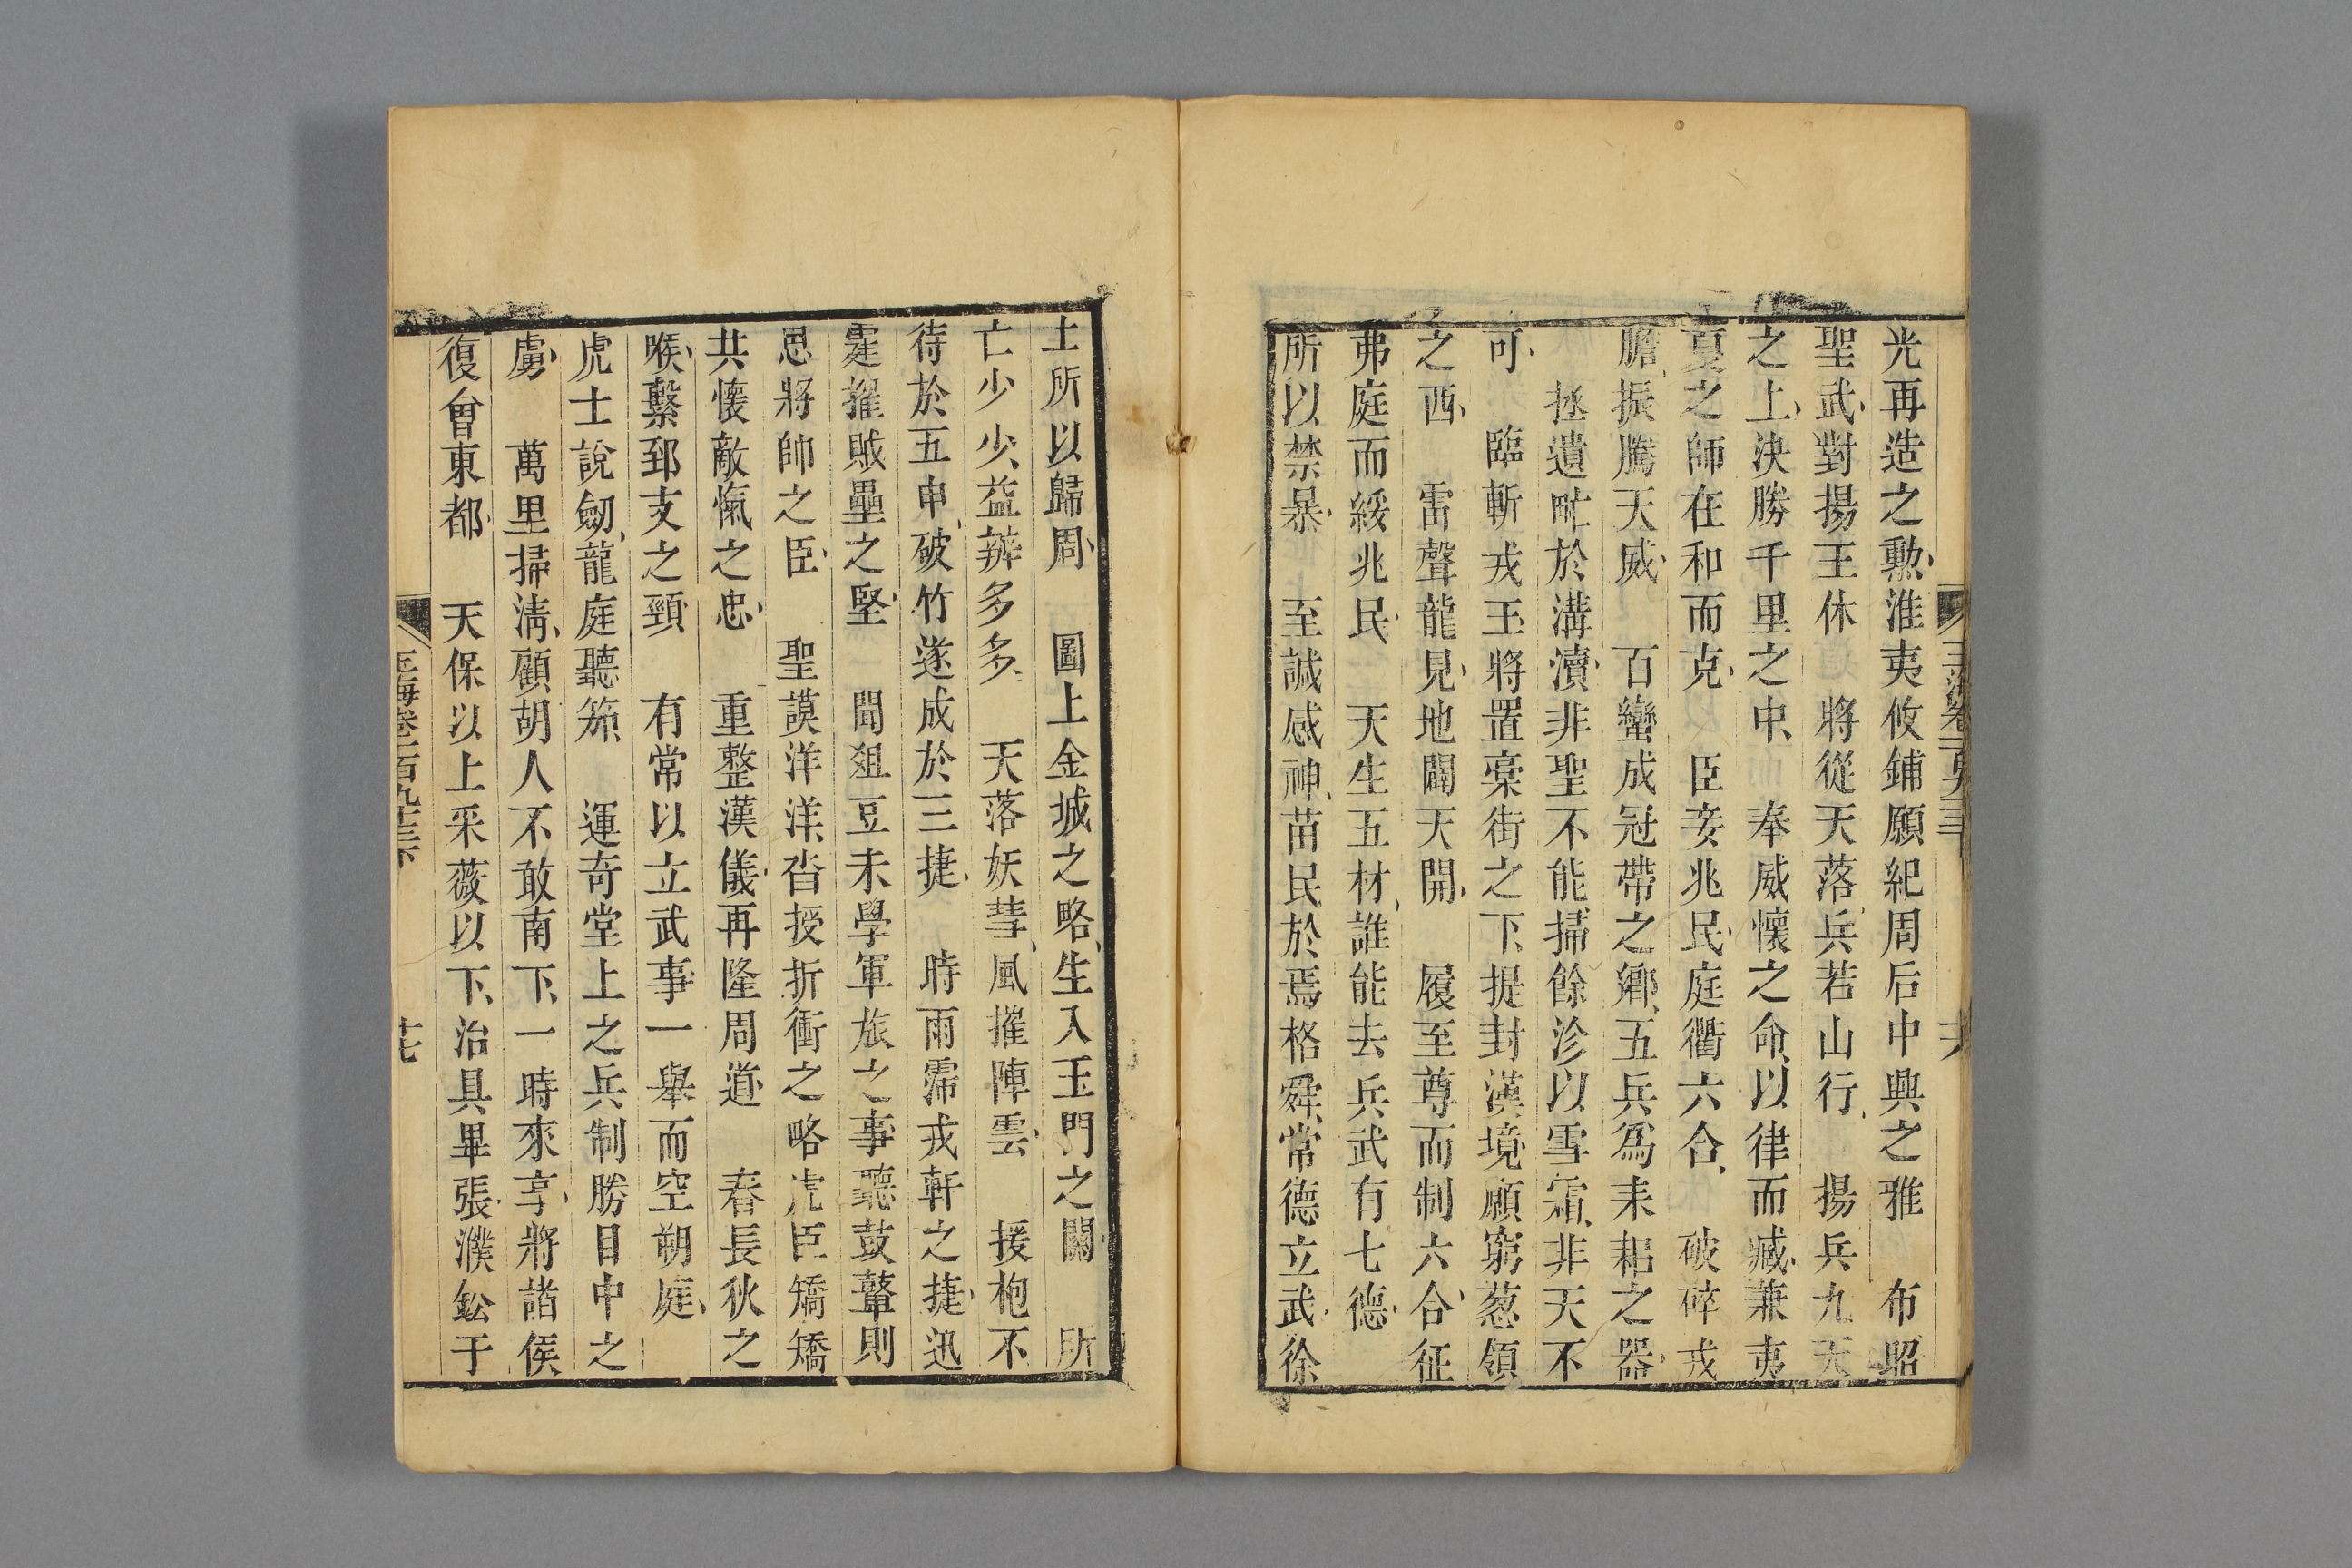 光再造之勲淮夷攸鋪願紀周后中興之雅　布昭
聖武對揚王休　將從天落兵若山行　揚兵九天
之上決勝千里之中　奉威懷之命以律而臧兼夷
夏之師在和而克　臣妾兆民庭衢六合　破碎戎
膽振騰天威　百蠻成冠帶之鄉五兵爲耒耜之器
　拯遺甿於溝瀆非聖不能掃餘沴以雪霜非天不
可　臨斬戎王將置藁街之下提封漢境願窮葱領
之西　雷聲龍見地闢天開　履至尊而制六合征
弗庭而綏兆民　天生五材誰能去兵武有七德
所以禁暴　至諴感神苗民於焉格舜常德立武徐
土所以歸周　圖上金城之略生入玉門之關　所
亡少少益辦多多　天落妖彗風摧陣雲　援枹不
待於五申破竹遂成於三捷　時雨霈戎軒之捷迅
霆摧賊壘之堅　聞爼豆未學軍旅之事聽鼓鼙則
思將帥之臣　聖謨洋洋沓授折衝之略虎臣矯矯
共懷敵愾之忠　重整漢儀再隆周道　舂長狄之
喉繫郅支之頸　有常以立武事一舉而空朔庭
虎士說劒龍庭聽笳　運奇堂上之兵制勝目中之
虜　萬里掃清顧胡人不敢南下一時來享將諸侯
復會東都　天保以上采薇以下治具畢張濮鈆于
玉海卷二百九十三下
十七